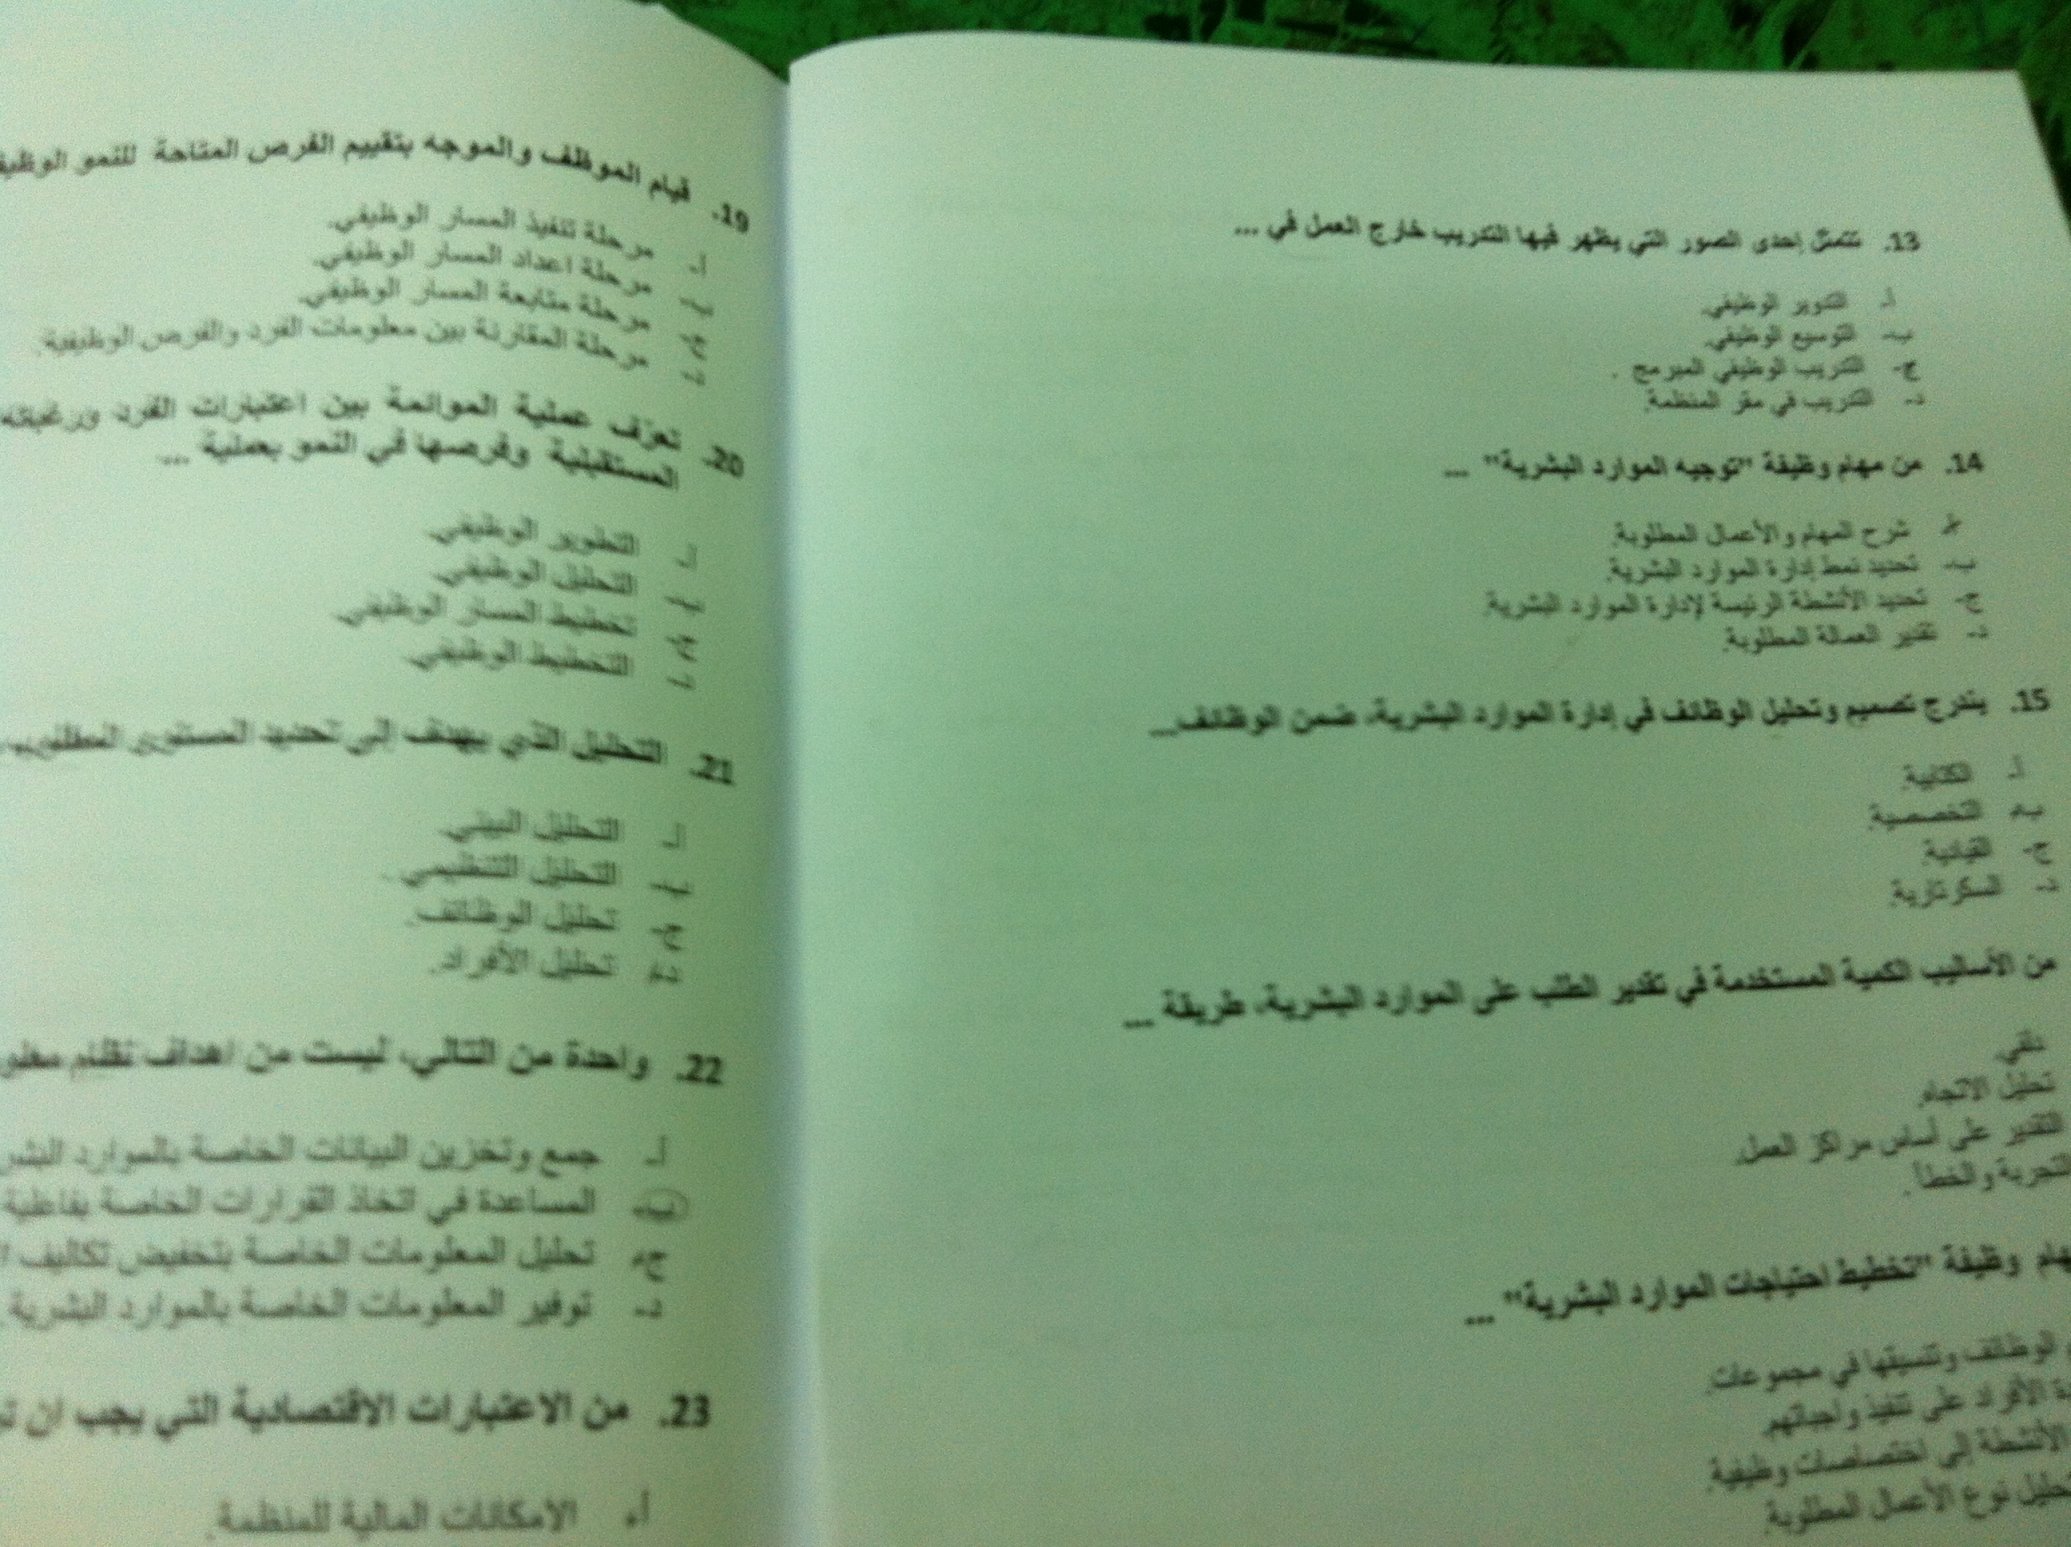 13. تتمثل إحدى الصور التي يظهر فيها التدريب خارج العمل في ...
أ- التدوير الوظيفي.
ب- التوسيع الوظيفي.
ج- التدريب الوظيفي المبرمج .
د- التدريب في مقر المنظمة.
14. من مهام وظيفة "توجيه الموارد البشرية" ...
أ- شرح المهام والأعمال المطلوبة.
ب- تحديد نمط إدارة الموارد البشرية.
ج- تحديد الأنشطة الرئيسة لإدارة الموارد البشرية.
د- تقدير العمالة المطلوبة.
15. يندرج تصميم وتحليل الوظائف في إدارة الموارد البشرية، ضمن الوظائف...
أ- الكتابية.
ب- التخصصية.
ج- القيادية.
د- السكرتارية.
من الأساليب الكمية المستخدمة في تقدير الطلب على الموارد البشرية، طريقة ...
دلفي.
تحليل الاتجاه.
التقدير على أساس مراكز العمل.
التجربة والخطأ .
هام وظيفة "تخطيط احتياجات الموارد البشرية" ...
الوظائف وتنسيقها في مجموعات.
الأفراد على تنفيذ واجباتهم.
الأنشطة إلى اختصاصات وظيفية.
حليل نوع الأعمال المطلوبة.
19. قيام الموظف والموجه بتقييم الفرص المتاحة للنمو الوظيف
أ- مرحلة تنفيذ المسار الوظيفي.
ب- مرحلة اعداد المسار الوظيفي.
ج- مرحلة متابعة المسار الوظيفي.
د- مرحلة المقارنة بين معلومات الفرد والفرص الوظيفية.
20. تعرّف عملية الموائمة بين اعتبارات الفرد ورغباته
المستقبلية وفرصها في النمو بعملية ...
أ- التطوير الوظيفي.
ب- التحليل الوظيفي.
ج- تخطيط المسار الوظيفي.
د- التخطيط الوظيفي.
21. التحليل الذي يهدف إلى تحديد المستوى المطلوب
أ- التحليل البيئي.
ب- التحليل التنظيمي .
ج- تحليل الوظائف.
د- تحليل الأفراد.
22. واحدة من التالي، ليست من أهداف نظام معلو
أ- جمع وتخزين البيانات الخاصة بالموارد البشر
ب- المساعدة في اتخاذ القرارات الخاصة بفاعلية
ج- تحليل المعلومات الخاصة بتخفيض تكاليف ا
د- توفير المعلومات الخاصة بالموارد البشرية
23. من الاعتبارات الاقتصادية التي يجب ان
أ- الامكانات المالية للمنظمة.